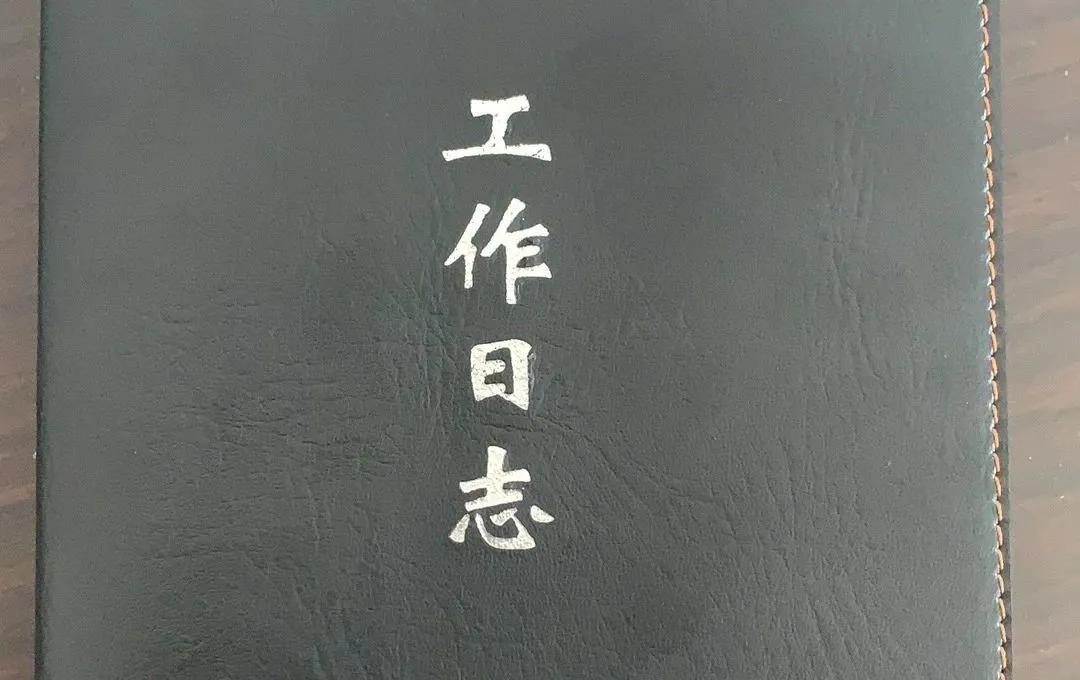 工作日志